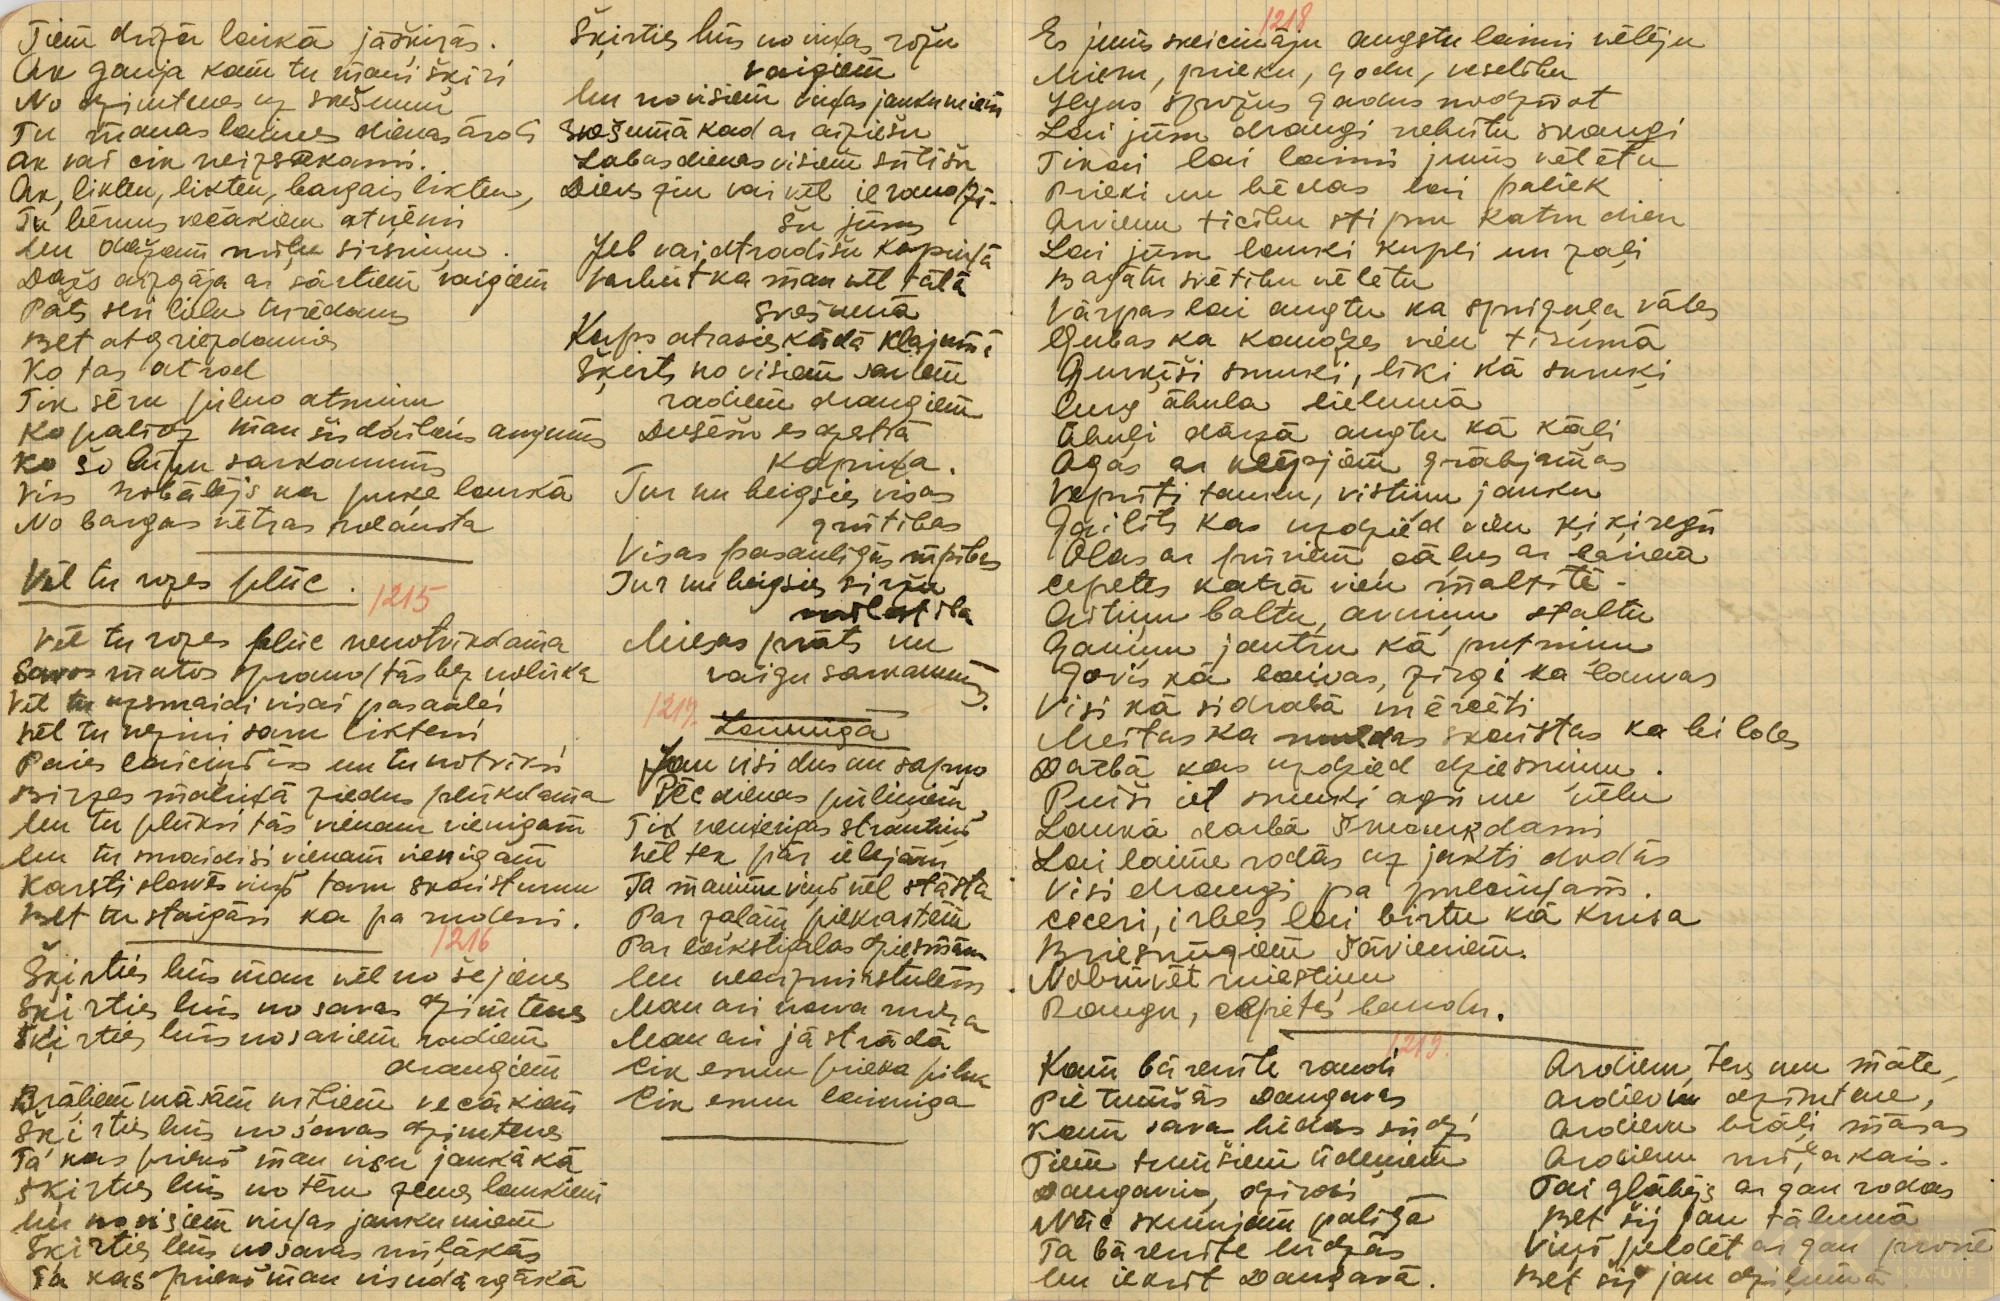 Tiem drīzā laikā jāšķiras.
Ak ganja kam tu mani šķiri
No dzimtenes uz svešumu
Tu manas laimes dienas ārdi
Ak vai cik neizsakami.
Ak, likten, likten, bargais likten,
Tu bērnus vecākiem atņēmi
Un dažam mīļu sirsniņu.
Dažs aizgāja ar sārtiem vaigiem
Pats sev lielu turēdams
Bet atgriezdamies
Ko tas atrod
Tik sēru pilno atmiņu
Ko palīdz man šis daiļais augums
Ko šo lūpu sarkanums
Viss nobālējs ka puķe laukā
No bargas vētras nolauzta
Vēl tu rozes plūc.
1215
Vēl tu rozes plūc nenotrūkdama
Savos matos spraud tās bez nolūka
Vēl tu uzsmaidi visai pasaulei
Vēl tu nezini savu likteni
Paies laiciņš īss un tu notrūksi
Birzes maliņā ziedus plūkdama
Un tu plūksi tās vienam vienīgam
Un tu smaidīsi vienam vienīgam
Karsti slavēs viņš tavu skaistumu
Bet tu staigāsi ka pa rudeni.
1216
Šķirties būs man vēl no šejienes
Šķirties būs no savas dzimtenes
Šķirties būs no saviem radiem
draugiem
Brāļiem māsām mīļiem vecākiem
Šķirties būs no savas dzimtenes
Tā kas priekš man visu jaukākā
Šķirties būs no tēvu zemes laukiem
Un no visiem viņas jaukumiem
Šķirties būs no savas mīļākās
Tā kas priekš man visudārgākā
Šķirties būs no viņas rožu
vaigiem
Un no visiem viņas jaukumiem
Svešumā kad as aiziešu
Labasdienas visiem sūtīšu
Dievs zin vai vēl ieraudzī-
šu jūs
Jeb vai atradīšu kapiņā
Varbūt ka man vēl tālā
svešumā
Kaps atrasies kādā klajumā
Šķirts no visiem saviem
radiem draugiem
Dusēšu es dzestrā
kapiņā.
Tur nu beigsies visas
grūtības
Visas pasaulīgās rūpības
Tur nu beigsies siržu
mīlestība
Miesas prāts un
vaigu sarkanums.
1217.
Laimīgā
Jau visi dus un sapņo
Pēc dienas pūliņiem
Tik nemierīgas strautiņš
Vēl tek pār ielejām
Ta māmiņu viņš vēl stāsta
Par zaļām piekrastēm
Par lakstīgalas dziesmām
Un neaizmirstulēm
Man ari nava miera
Man ari jāstrādā
Cik esmu prieka pilna
Cik esmu laimīga
1218
Es jums sveicināju augstu laimi vēlēju
Mieru, prieku, godu, veselību
Ilgus spožus gadus nodzīvot
Lai jūm draugi nebūtu skaugi
Tikai lai laimi jums vēlētu
Prieki un bēdas lai paliek
Arvienu ticību stipru katru dien
Lai jūm lauki kupli un zaļi
Bagātu svētību vēlētu
Vārpas lai augtu ka spriguļa vāles
Gubas ka kaudzes vien tīrumā
Gurķīši smuki, līki kā smuki
Burg ābula lielumā
Ābuļi dārzā augtu kā kāļi
Ogas ar ķēpjiem grābjamas
Vepriti tauku, vistiņu jauku
Gailīts kas uzdzied vien ķiķirega
Olas ar pūriem gāļas ar lairem
Cepetis katrā vien maltītē.
Aitiņu baltu, avniņu staltu
Ganiņu jautru kā putniņu
Govis kā laivas, zirgi ka lauvas
Visi kā sidrabā mērcēti
Meitas ka skaistas ka bildes
Darbā kas uzdzied dziesmiņu.
Puiši iet smuki agri un vēlu
Laukā darbā šmaukdami
Lai laime rodās uz jakti dodās
Visi draugi pa pulciņam.
Ceceri, irbes lai birtu kā krusa
Briesmīgiem šāvieniem.
Nobruvēt miestiņu
Raugu, cepieti baudu.
1219.
Kam bārenīte raudi
Pie tumšās Daugavas
Kam sava bēdas sūdzi
Tiem tumšiem ūdeņiem
Daugaviņ, dzirdi
Nāc skumjam palīgā
Ta bārenīte lūdzās
Un iekrīt Daugavā.
Ardievu, tevs un māte,
Ardievu dzimtene,
Ardievu brāļi māsas
Ardievu mīļakais.
Tai glābējs ar gan rodas
Bet šij jau tālumā
Viņš peldēt ar gan prot
Bet šij jau dziļumā